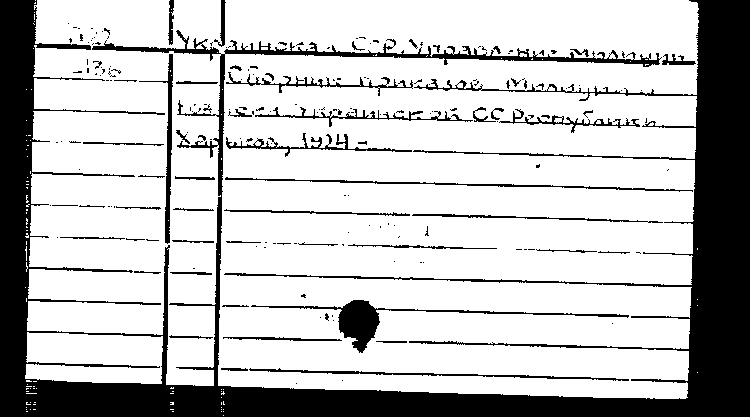 Украинская ССР. Управление милиции
136 Сборник приказов Милиции и
розыска Украинской ССРеспублики
Харьков, 1924 -